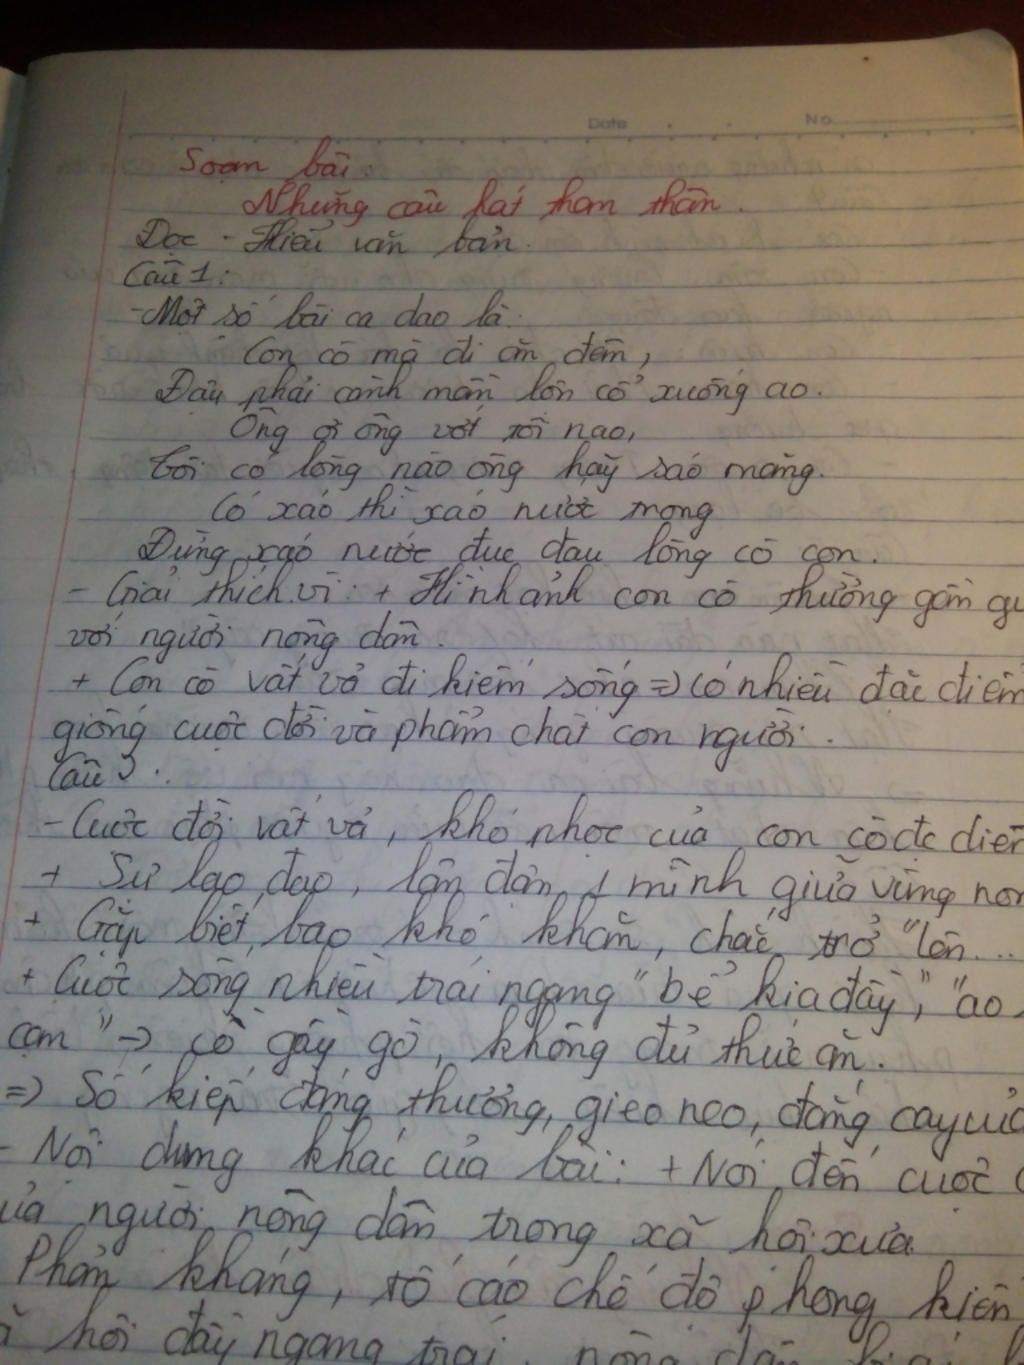 Date No
Soạn bài:
Những câu hát than thân.
Đọc - Hiểu văn bản.
Câu 1:
- Một số bài ca dao là:
Con cò mà đi ăn đêm,
Đậu phải cành mềm lộn cổ xuống ao.
Ông ơi ông vớt tôi nao,
Tôi có lòng nào ông hãy sáo măng.
Có xáo thì xáo nước trong
Đừng xáo nước đục đau lòng cò con.
- Giải thích vì: + Hình ảnh con cò thường gần gũ
với người nông dân.
+ Con cò vất vả đi kiếm sống => có nhiều đặc điểm
giống cuộc đời và phẩm chất con người.
Câu 2:
- Cuộc đời vất vả, khó nhọc của con cò đc diễn
+ Sự lao đao, lận đận, 1 mình giữa vùng non
+ Gặp biết bao khó khăn, chắc trở "lên...
+ Cuộc sống nhiều trái ngang "bể kia đầy", "ao
cạn" -> cò gầy gò, không đủ thức ăn.
=> Số kiếp đáng thương, gieo neo, đắng cay củ
- Nội dung khác của bài: + Nói đến cuộc
ủa người nông dân trong xã hội xưa
Phản kháng, tố cáo chế độ phong kiến
hội đầy ngang trái, nông dân